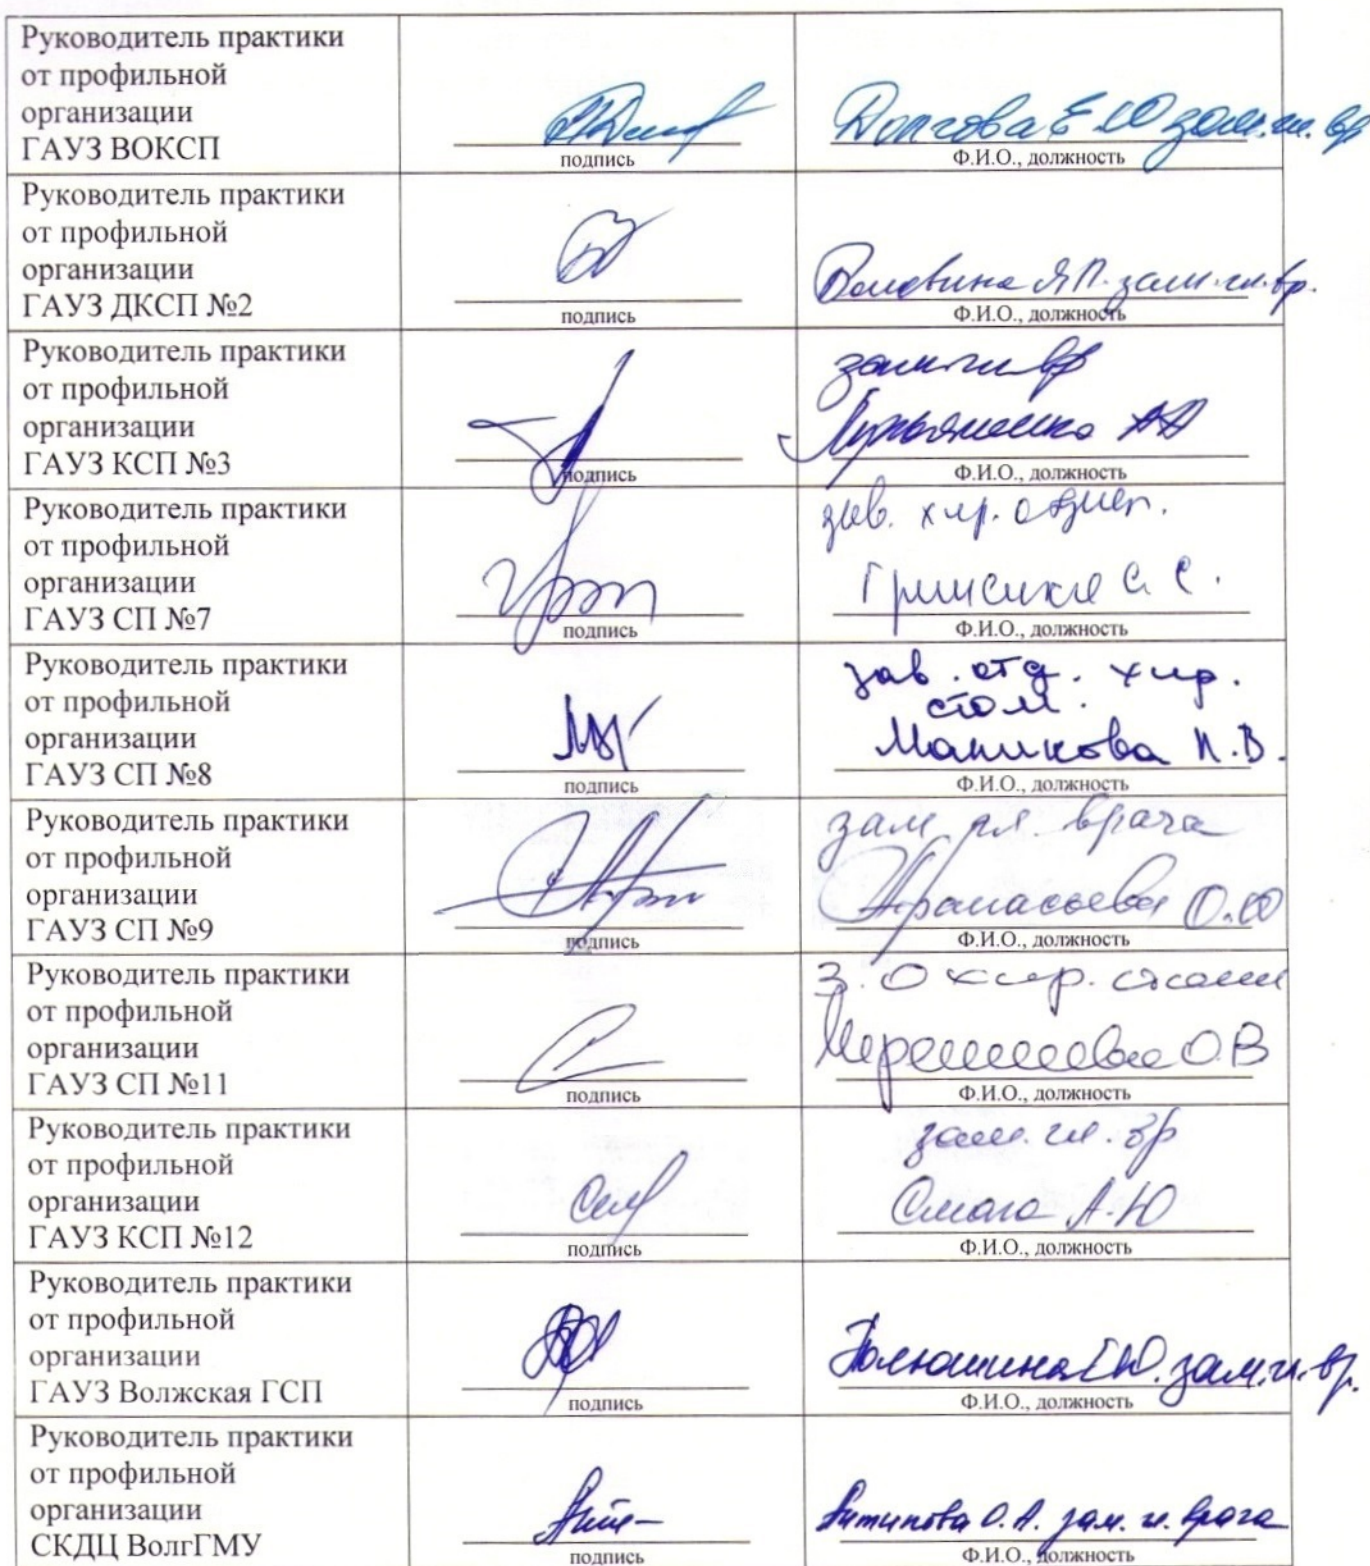 Руководитель практики
от профильной
организации
ГАУЗ ВОКСП
подпись
Долгова Е.Ю зам. гл. вр
Ф.И.О., должность
Руководитель практики
от профильной
организации
ГАУЗ ДКСП №2
подпись
Я.П. зам. гл. вр.
Ф.И.О., должность
Руководитель практики
от профильной
организации
ГАУЗ КСП №3
подпись
зам гл вр
Лукьяненко
Ф.И.О., должность
Руководитель практики
от профильной
организации
ГАУЗ СП №7
подпись
зав. хир. отдел.
С.
Ф.И.О., должность
Руководитель практики
от профильной
организации
ГАУЗ СП №8
подпись
зав. отд. хир.
стом.
Маликова Н.В.
Ф.И.О., должность
Руководитель практики
от профильной
организации
ГАУЗ СП №9
подпись
зам гл. врача
Афанасьева О.Ю
Ф.И.О., должность
Руководитель практики
от профильной
организации
ГАУЗ СП №11
подпись
З.О хир. стом
О.В
Ф.И.О., должность
Руководитель практики
от профильной
организации
ГАУЗ КСП №12
подпись
зам. гл. вр
А.Ю
Ф.И.О., должность
Руководитель практики
от профильной
организации
ГАУЗ Волжская ГСП
подпись
зам. гл. вр.
Ф.И.О., должность
Руководитель практики
от профильной
организации
СКДЦ ВолгГМУ
подпись
Антипова О.А. зам. гл. врача
Ф.И.О., должность